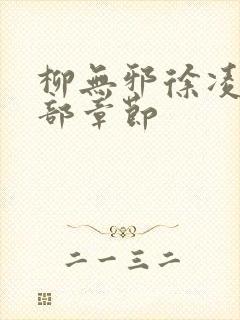 柳無邪徐凌
部章節
二一三二